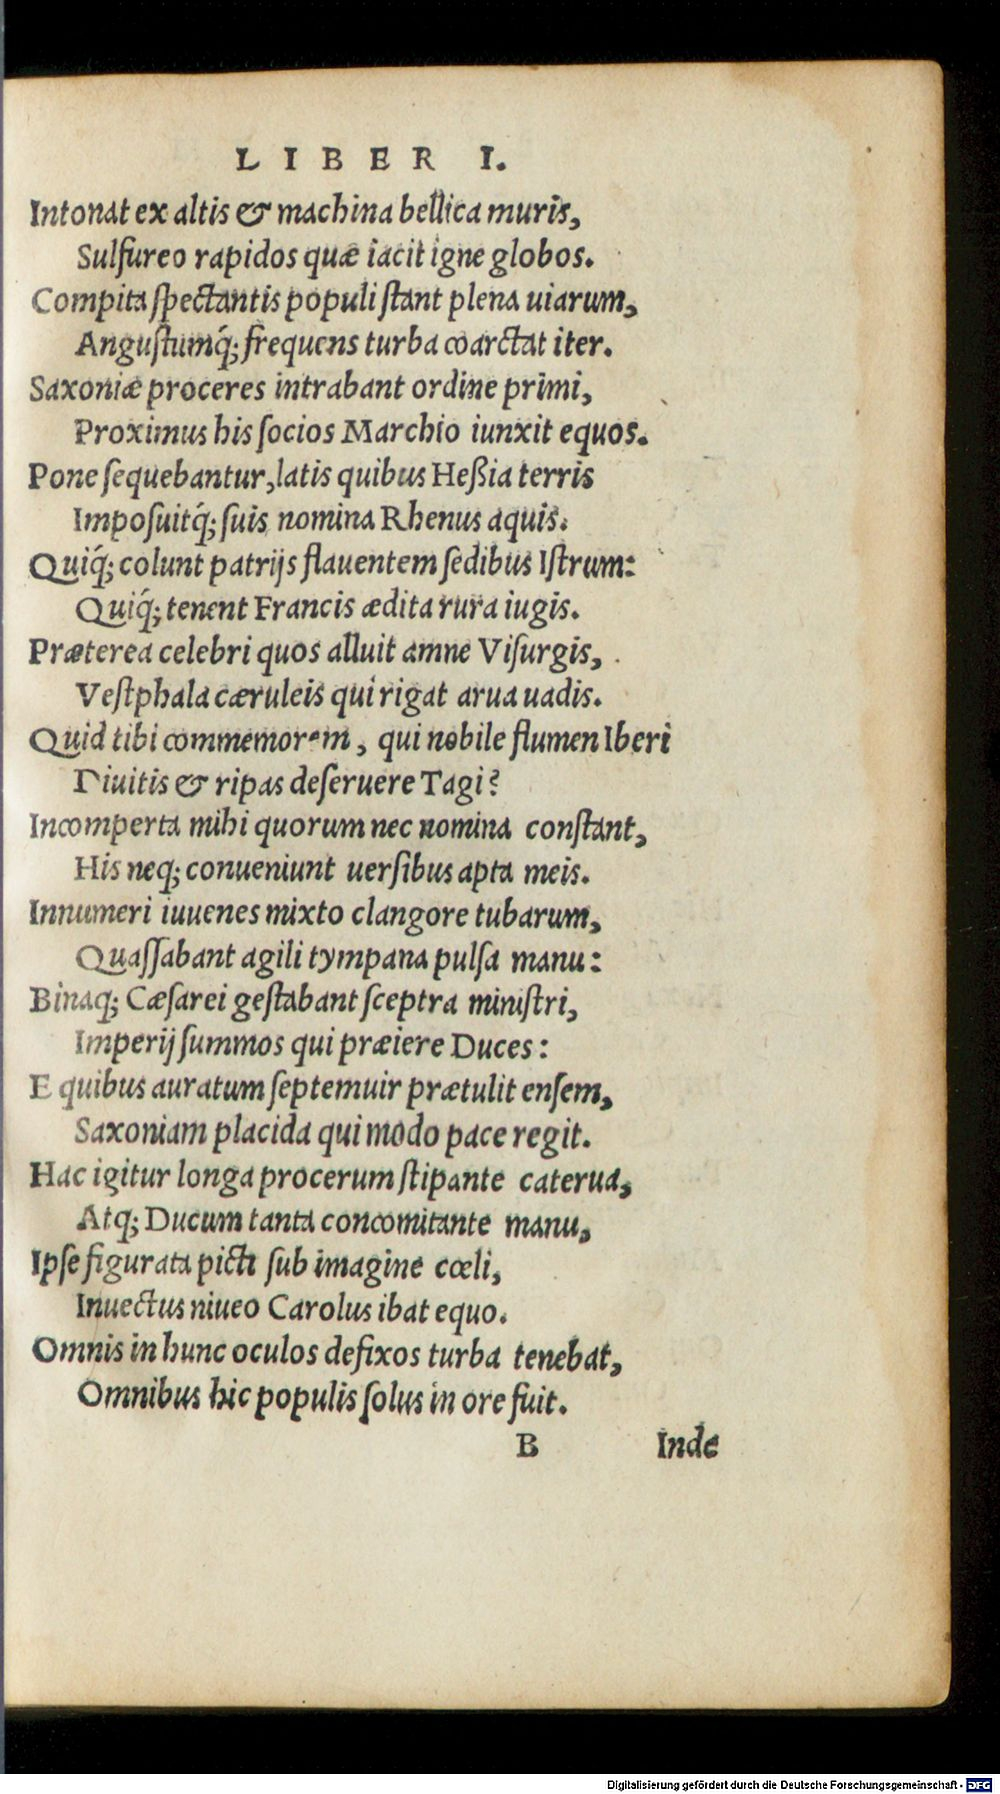 LIBER I.
Intonat ex altis & machina bellica muris,
Sulfureo rapidos quæ iacit igne globos.
Compita ſpectantis populi ſtant plena uiarum,
Anguſtumq́; frequens turba coarctat iter.
Saxoniæ proceres intrabant ordine primi,
Proximus his ſocios Marchio iunxit equos.
Pone ſequebantur, latis quibus Heßia terris
Impoſuitq́; ſuis nomina Rhenus aquis.
Quiq́; colunt patrijs flauentem ſedibus Iſtrum:
Quiq́; tenent Francis ædita rura iugis.
Præterea celebri quos alluit amne Viſurgis,
Veſtphala cæruleis qui rigat arua uadis.
Quid tibi commemorem, qui nobile flumen Iberi
Diuitis & ripas deſeruere Tagi?
Incomperta mihi quorum nec nomina conſtant,
His neq; conueniunt uerſibus apta meis.
Innumeri iuuenes mixto clangore tubarum,
Quaſſabant agili tympana pulſa manu:
Binaq; Cæſarei geſtabant ſceptra miniſtri,
Imperij ſummos qui præiere Duces:
E quibus auratum ſeptemuir prætulit enſem,
Saxoniam placida qui modo pace regit.
Hac igitur longa procerum ſtipante caterua,
Atq; Ducum tanta concomitante manu,
Ipſe figurata picti ſub imagine cœli,
Inuectus niueo Carolus ibat equo.
Omnis in hunc oculos defixos turba tenebat,
Omnibus hic populis ſolus in ore fuit.
B Inde
Digitalisierung gefördert durch die Deutsche Forschungsgemeinschaft - DFG